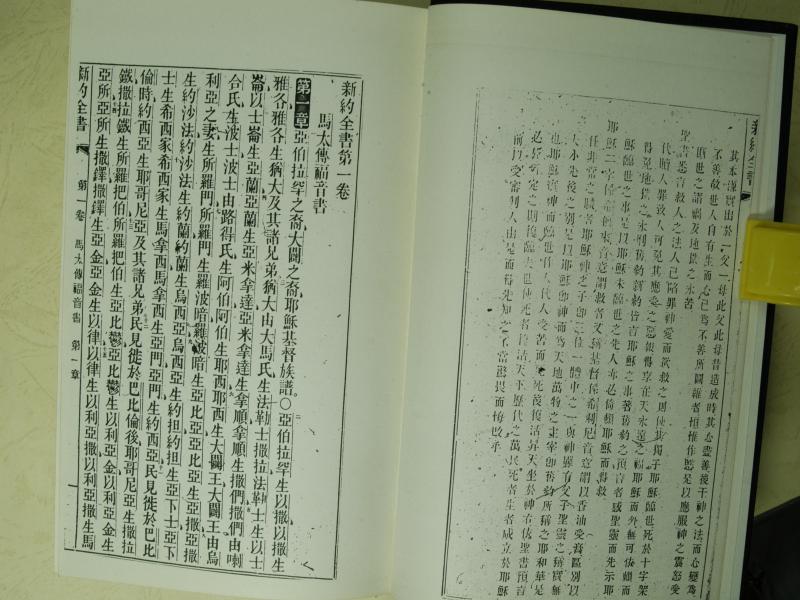 新約全書
其本源實出於一父一母此父此母昔造成時其心藍善後干神之法而心變爲
不善故世人自有生而心已爲不善所圖維者恒惟作惡是以應服神之震怒受
斯世之諸禍及地獄之永苦
聖書悉言救人之法人已陷罪神愛而欲救之則使其獨子耶穌臨世死於十字架
代贖人罪故人可免其應受之惡報得享在天永遠之福耶穌而外無可依賴而
得免地獄之永刑舊約新約皆言耶穌之事著舊約之預言者感聖靈而先示耶
穌臨世之事是以耶穌未臨世之先人亦必倚賴耶穌而得救
耶穌二字係希伯來音意謂救者又稱基督係希利尼音意謂以香油受膏區別以
任非常之職者耶穌神之子卽三位一體中之一與神原有父子聖靈之稱實無
大小先後之別是以耶穌卽神而爲天地萬物之主宰卽舊約所稱之耶和華是
也耶穌實神而臨世作人代人受苦而死死後復活昇天坐於神右依聖書預言
必於所定之期後臨世使死者復活天下歷代之萬民死者生者咸立於耶穌
前以受審判人由是而得先知之可當驚畏而悔改乎
新約全書第一卷
馬太傳福音書
第一章亞伯拉罕之裔大闢之裔耶穌基督族譜○亞伯拉罕生以撒以撒生
雅各雅各生猶大及其諸兄弟猶大由大馬氏生法勒士撒拉法勒士生以士
崙以士崙生亞蘭亞蘭生亞米拿達亞米拿達生拿順拿順生撒們撒們由喇
合氏生波士波士由路得氏生阿伯阿伯生耶西耶西生大闢王大闢王由烏
利亞之妻生所羅門所羅門生羅波暗羅波暗生亞比亞亞比亞生亞撒亞撒
生約沙法約沙法生約蘭約蘭生烏西亞烏西亞生約担約担生亞卜士亞卜
士生希西家希西家生馬拿西馬拿西生亞們亞們生約西亞民見徙於巴比
倫時約西亞生耶哥尼亞及其諸兄弟民見徙於巴比倫後耶哥尼亞生撒拉
鐵撒拉鐵生所羅把伯所羅把伯生亞比鬱亞比鬱生以利亞金以利亞金生
亞所亞所生撒鐸撒鐸生亞金亞金生以律以律生以利亞撒以利亞撒生馬
新約全書 第一卷 馬太傳福音書 第一章 一